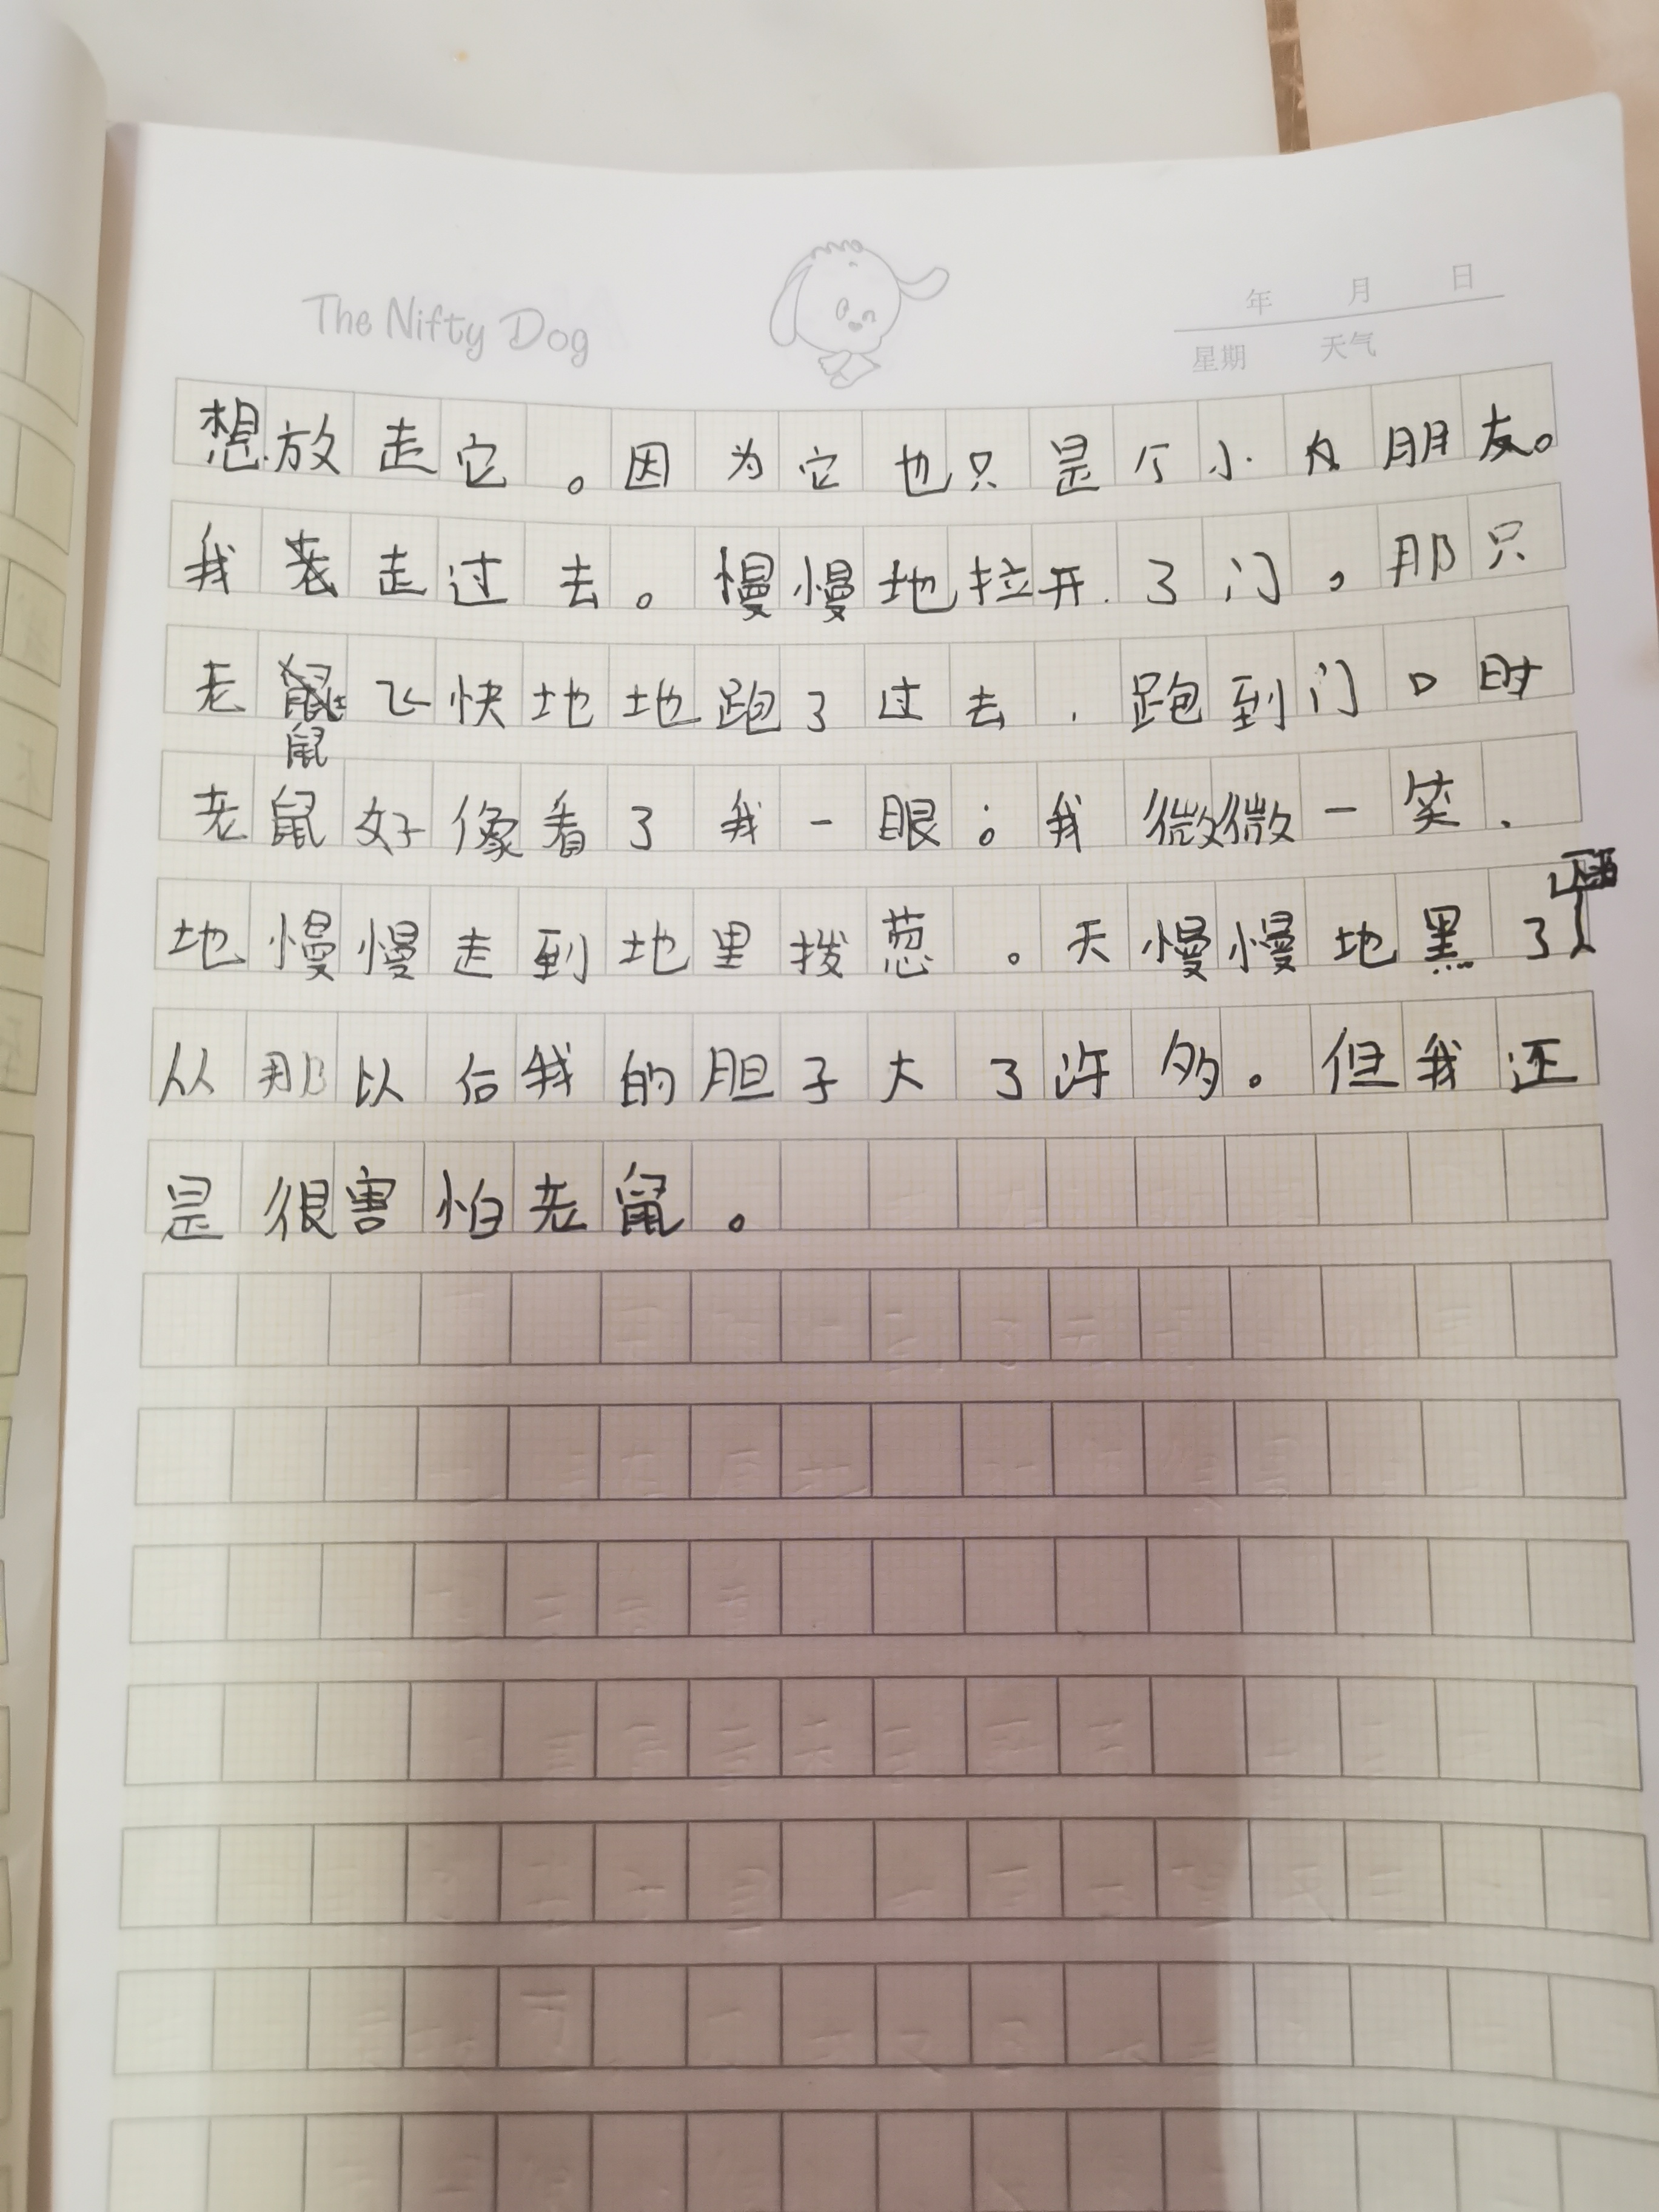 The Nifty Dog
年 月 日
星期 天气
想放走它。因为它也只是个小朋友。
我走过去。慢慢地拉开了门。那只
老鼠飞快地地跑了过去,跑到门口时
老鼠好像看了我一眼。我微微一笑,
地慢慢走到地里拨葱。天慢慢地黑了
从那以后我的胆子大了许多。但我还
是很害怕老鼠。